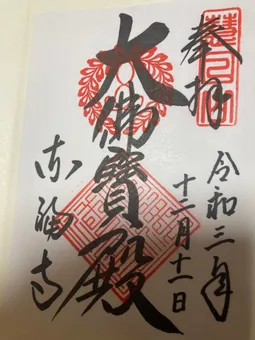 慧日山
奉拝
令和三年
十二月十一日
大佛寶殿
東福寺